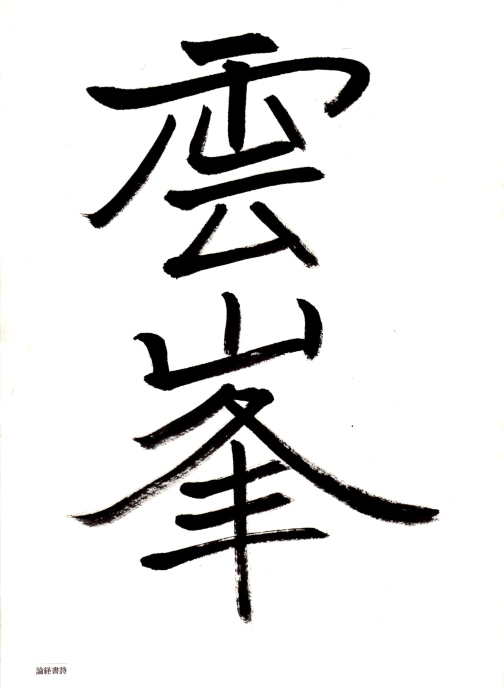 雲峯
論経書詩